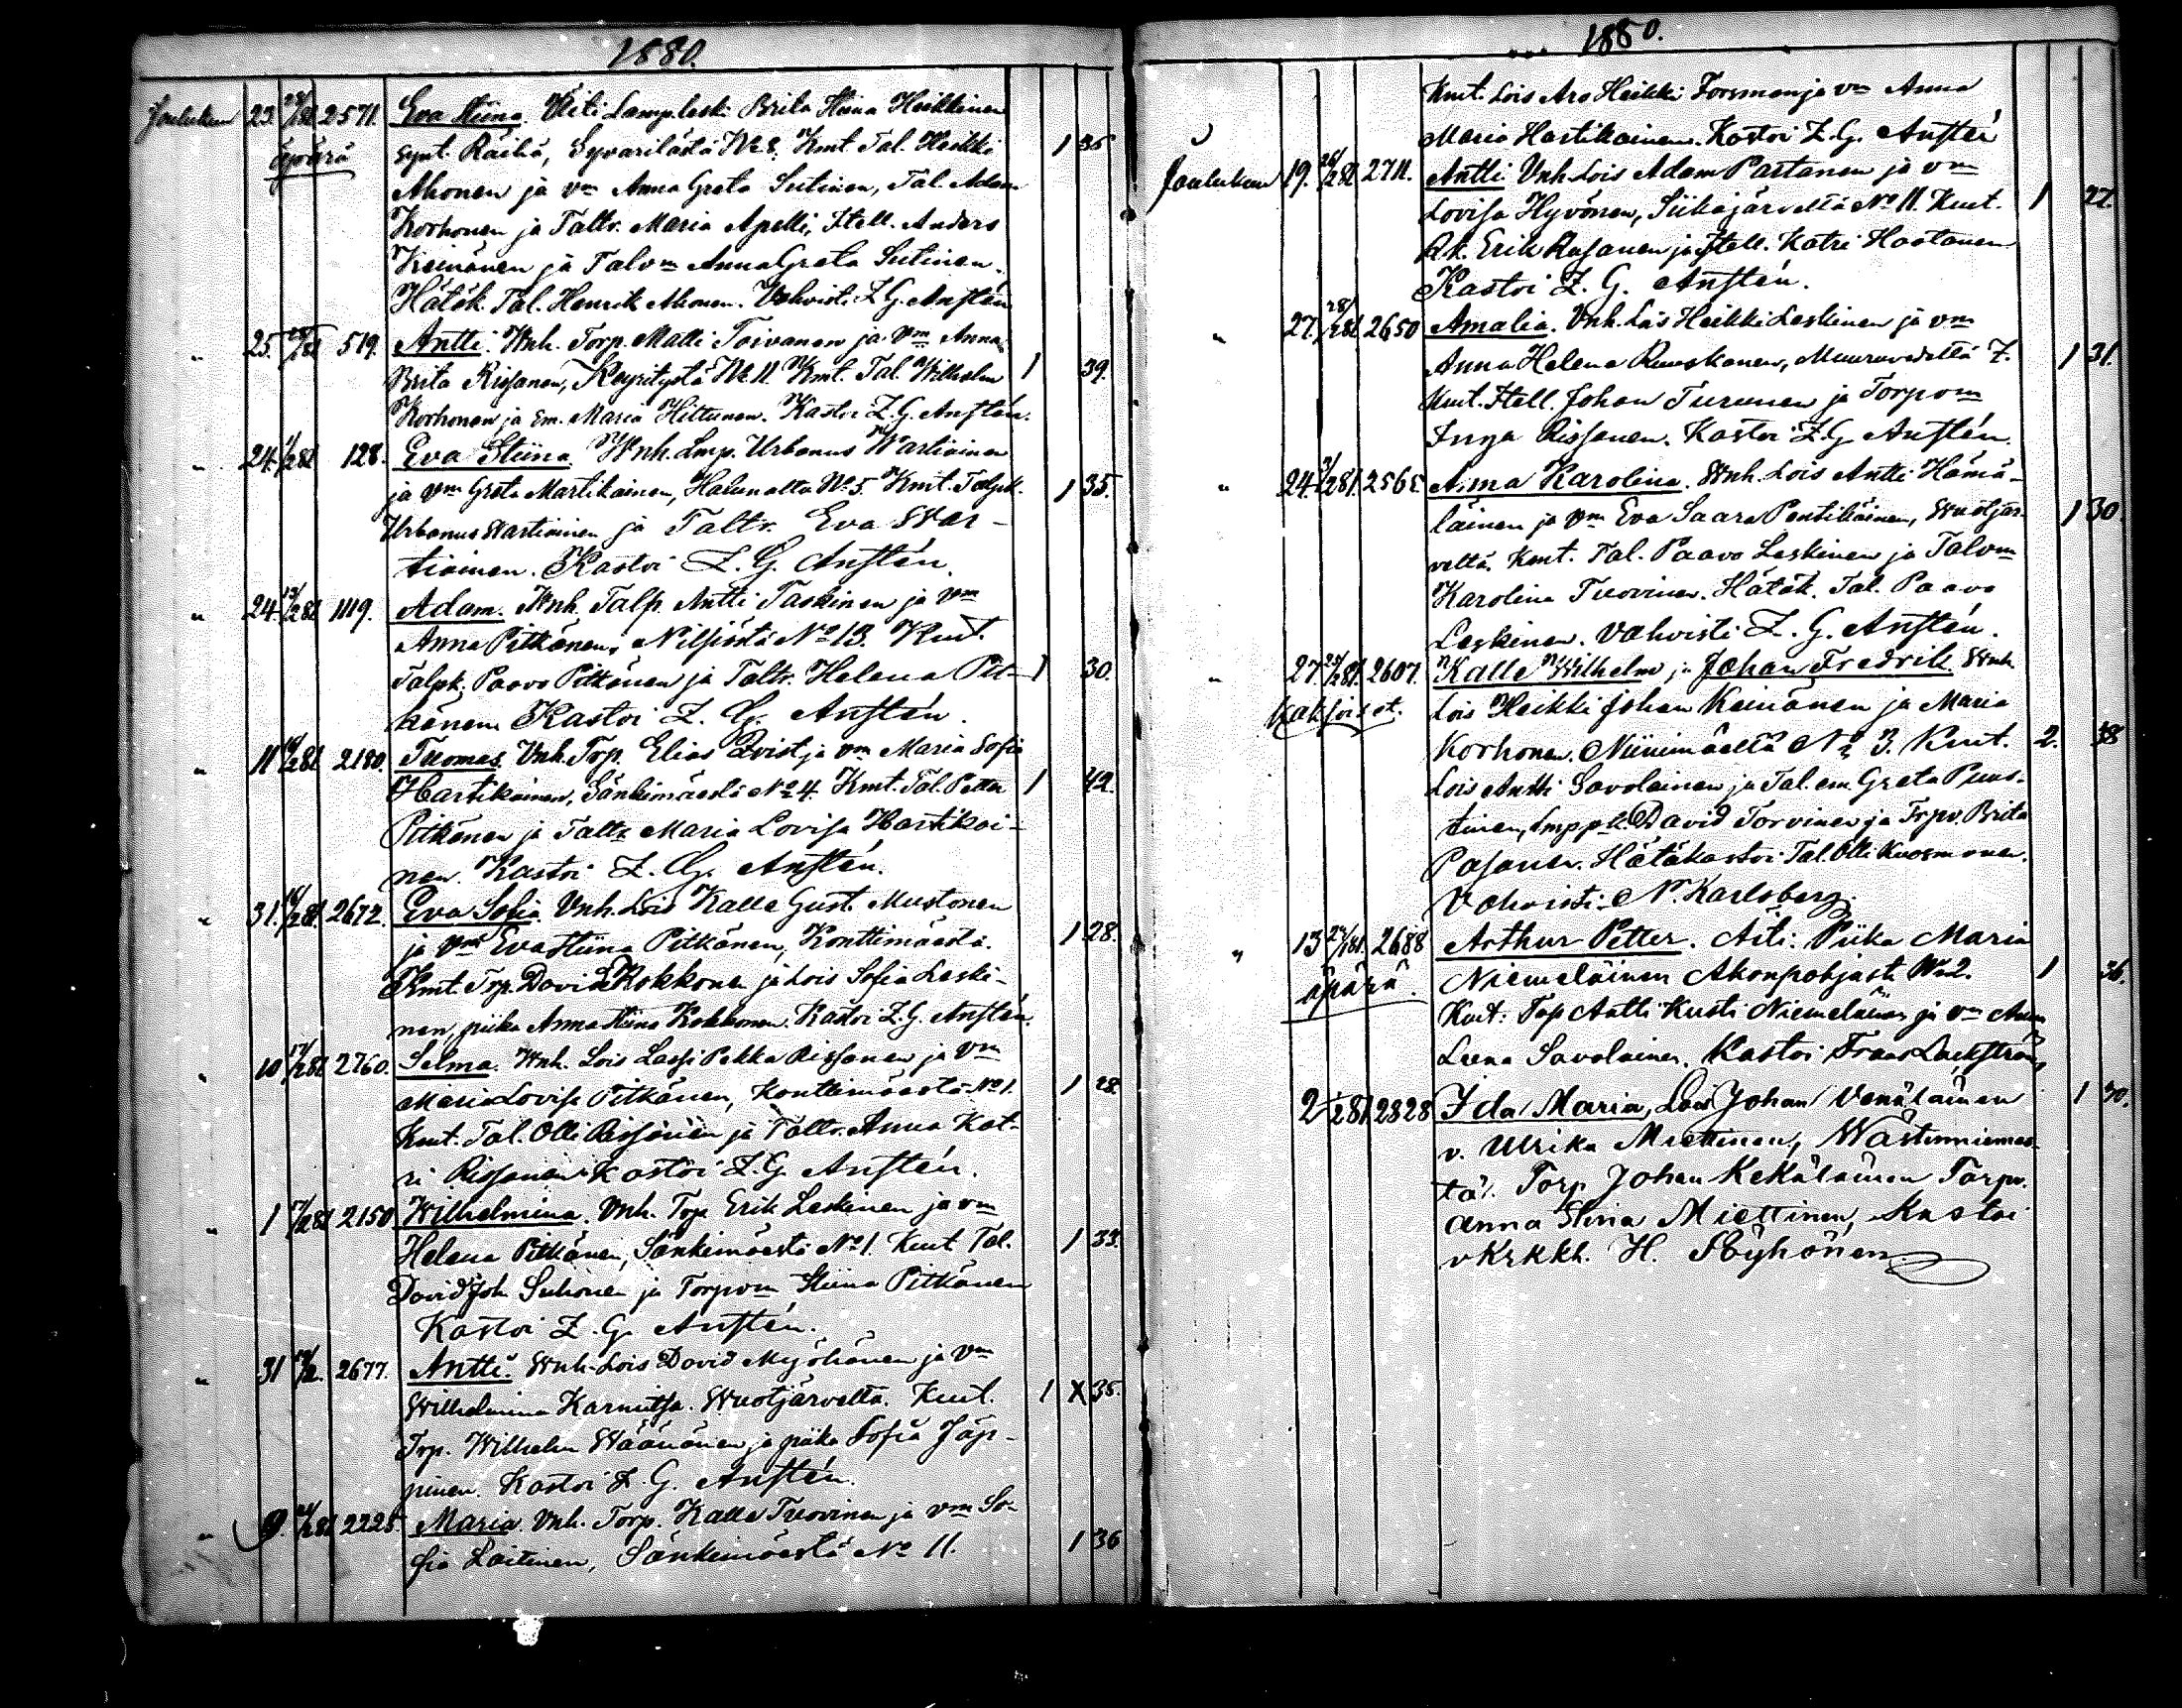 1880.
Joulukuu 23. 28/1 81 2571. Eva Stiina. Äiti Lamp.lesk. Brita Stiina Heikkinen
äpärä synt. Räihä, Syvärilästä No 8. Kmt. Tal. Heikki 1 35
Ahonen ja vm Anna Greta Sutinen, Tal. Adam
Korhonen ja Taltr. Maria Apelli, Itell. Anders
Keinänen ja Talvm Anna Greta Sutinen.
Hätäk. Tal. Henrik Ahonen. Vahvisti Z. G. Ansten
" 25. 81 519. Antti. Wnh. Torp. Matti Toivanen ja vm Anna
Brita Rissanen, Keyritystä No 11. Kmt. Tal. Wilhelm 1 39.
Korhonen ja Em. Maria Hiltunen. Kastoi Z. G. Anstén.
" 24. 1/2 81 128. Eva Stiina. Wnh. Lmp. Urbanus Wartiainen
ja vm Greta Martikainen, Halunalta No 5. Kmt. Talpk. 1 35.
Urbanus Wartiainen ja Taltr. Eva War-
tiainen. Kastoi Z. G. Anstén.
" 24. 13/2 81 1119. Adam. Wnh. Talp. Antti Taskinen ja vm
Anna Pitkänen, Nilsiästä No 13. Kmt.
Talpk. Paavo Pitkänen ja Taltr. Helena Pit- 1 30.
känen. Kastoi Z. G. Anstén.
" 11 16/2 81 2180. Tuomas. Vnh. Trp. Elias Qvist ja vm Maria Sofia
Hartikainen, Sänkimäestä No 4. Kmt. Tal. Petter 1 42.
Pitkänen ja Taltr Maria Lovisa Hartikai-
nen. Kastoi Z. G. Anstén.
" 31. 16/2 81. 2672. Eva Sofia. Vnh. Lois Kalle Gust. Mustonen
ja vm Eva Stiina Pitkänen, Konttimäestä. 1 28.
Kmt. Trp. David Kokkonen ja Lois Sofia Leski-
nen, piika Anna Stiina Kokkonen. Kastoi Z. G. Anstén.
" 10 17/2 81 2760. Selma. Wnh. Lois Lassi Pekka Rissanen ja vm
Maria Lovisa Pitkänen, Konttimäestä No 1. 1 28.
Kmt. Tal. Olli Rissanen ja Taltr. Anna Kat-
ri Rissanen. Kastoi Z. G. Anstén.
" 1 17/2 81 2150. Wilhelmina. Vnh. Trp. Erik Leskinen ja vm
Helena Pitkänen, Sänkimäestä No 1. Kmt Tal. 1 33.
David Joh. Suhonen ja Torpvm Stiina Pitkänen
Kastoi Z. G. Anstén.
" 31 2677. Antti. Wnh. Lois David Myöhänen ja vm
Wilhelmina Karnutsa. Wuotjärveltä. Kmt. 1 X 35.
Trp. Wilhelm Wäänänen ja piika Sofia Jäp-
pinen. Kastoi Z. G. Anstén.
" 9. 81 2225 Maria. Vnh. Torp. Kalle Tuovinen ja vm So-
fia Laitinen, Sänkimäestä No 11. 1 36
1880.
Kmt. Lois Aro Heikki Forsman ja vm Anna
Maria Hartikainen. Kastoi Z. G. Anstén
Joulukuu 19. 26/2 81 2711. Antti Vnh. Lois Adam Partanen ja vm
Lovisa Hyvönen, Siikajärveltä No 11. Kmt. 1 27.
Rk. Erik Rusanen ja Itell. Katri Haatanen
Kastoi Z. G. Anstén.
" 27. 28/2 81 2650 Amalia. Vnh. Lois Heikki Leskinen ja vm
Anna Helena Ruuskanen, Muuruvedeltä 7. 1 31.
Kmt. Itell. Johan Turunen ja Torpvm
Inga Rissanen. Kastoi Z. G. Anstén.
" 24. 2/2 81. 2565 Anna Karolina. Wnh. Lois Antti Hämä-
läinen ja vm Eva Saara Pentikäinen, Wuotjär- 1 30.
veltä. Kmt. Tal. Paavo Leskinen ja Talvm
Karolina Tuovinen. Hätäk. Tal. Paavo
Leskinen. Vahvisti Z. G. Anstén.
" 27. 81. 2607. Kalle Wilhelm ja Johan Fredrik. Wnh.
Kaksoiset. Lois Heikki Johan Keinänen ja Maria
Korhonen. Niinimäeltä No 3. Kmt. 2. 38
Lois Antti Savolainen ja Tal. em. Greta Puus-
tinen, Lmp.pk. David Torvinen ja Trpv. Brita
Pasanen. Hätäkastoi Tal. Olli Kuosmonen.
Vahvisti N. Karlsberg.
" 13 27/1 81. 2688 Arthur Petter. Äiti: Piika Maria
äpärä. Niemeläinen Akonpohjast No 2. 1 36.
Kmt. Trp Antti Kusti Niemeläinen ja vm Anna
Leena Savolainen. Kastoi Frans Lackström
2 1/2 81 2828 Ida Maria, Lois Johan Venäläinen 1 30.
v. Ulrika Miettinen, Wästinniemes-
tä. Torp Johan Kekäläinen Torpv.
Anna Stina Miettinen, Kastoi
vKrkkh. H. Pöyhönen